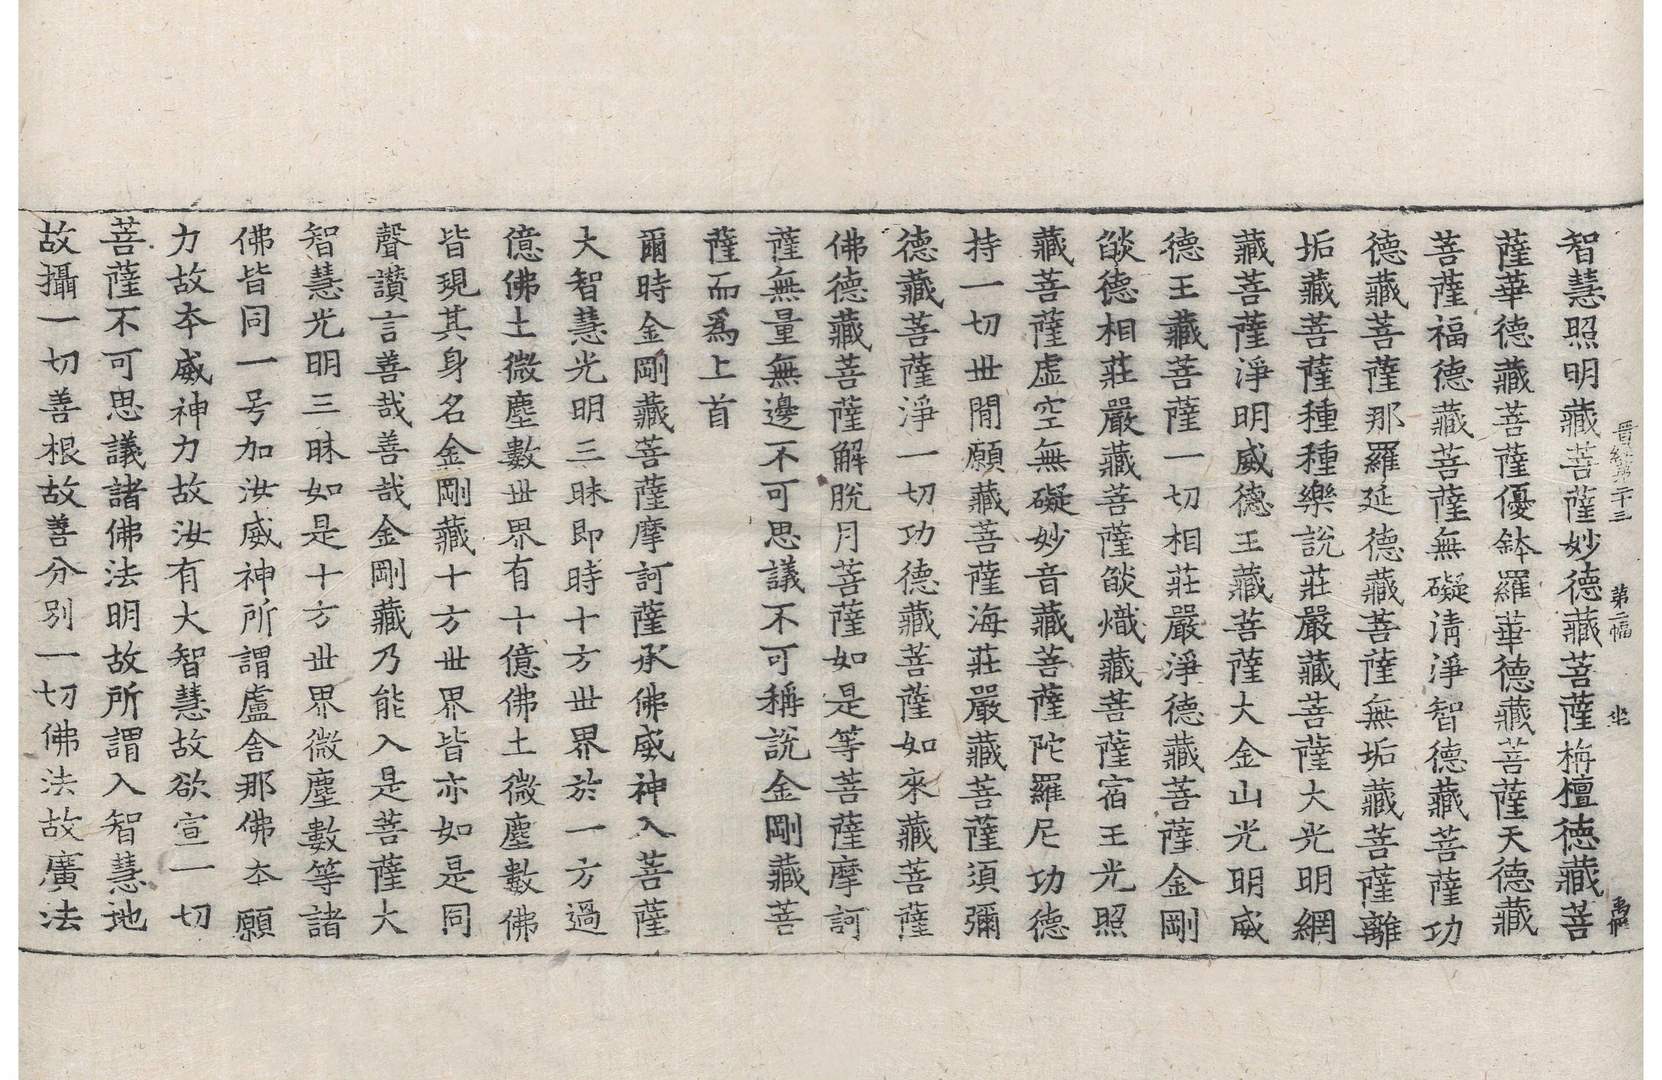 晋經第二十三 第二幅 坐 禹
智慧照明藏菩薩妙德藏菩薩栴檀德藏菩
薩華德藏菩薩優鉢羅華德藏菩薩天德藏
菩薩福德藏菩薩無礙清淨智德藏菩薩功
德藏菩薩那羅延德藏菩薩無垢藏菩薩離
垢藏菩薩種種樂說莊嚴藏菩薩大光明網
藏菩薩淨明威德王藏菩薩大金山光明威
德王藏菩薩一切相莊嚴淨德藏菩薩金剛
焰德相莊嚴藏菩薩焰熾藏菩薩宿王光照
藏菩薩虛空無礙妙音藏菩薩陀羅尼功德
持一切世間願藏菩薩海莊嚴藏菩薩須彌
德藏菩薩淨一切功德藏菩薩如來藏菩薩
佛德藏菩薩解脫月菩薩如是等菩薩摩訶
薩無量無邊不可思議不可稱說金剛藏菩
薩而爲上首
爾時金剛藏菩薩摩訶薩承佛威神入菩薩
大智慧光明三昧即時十方世界於一方過
億佛土微塵數世界有十億佛土微塵數佛
皆現其身名金剛藏十方世界皆亦如是同
聲讚言善哉善哉金剛藏乃能入是菩薩大
智慧光明三昧如是十方世界微塵數等諸
佛皆同一号加汝威神所謂盧舍那佛本願
力故本威神力故汝有大智慧故欲宣一切
菩薩不可思議諸佛法明故所謂入智慧地
故攝一切善根故善分別一切佛法故廣法